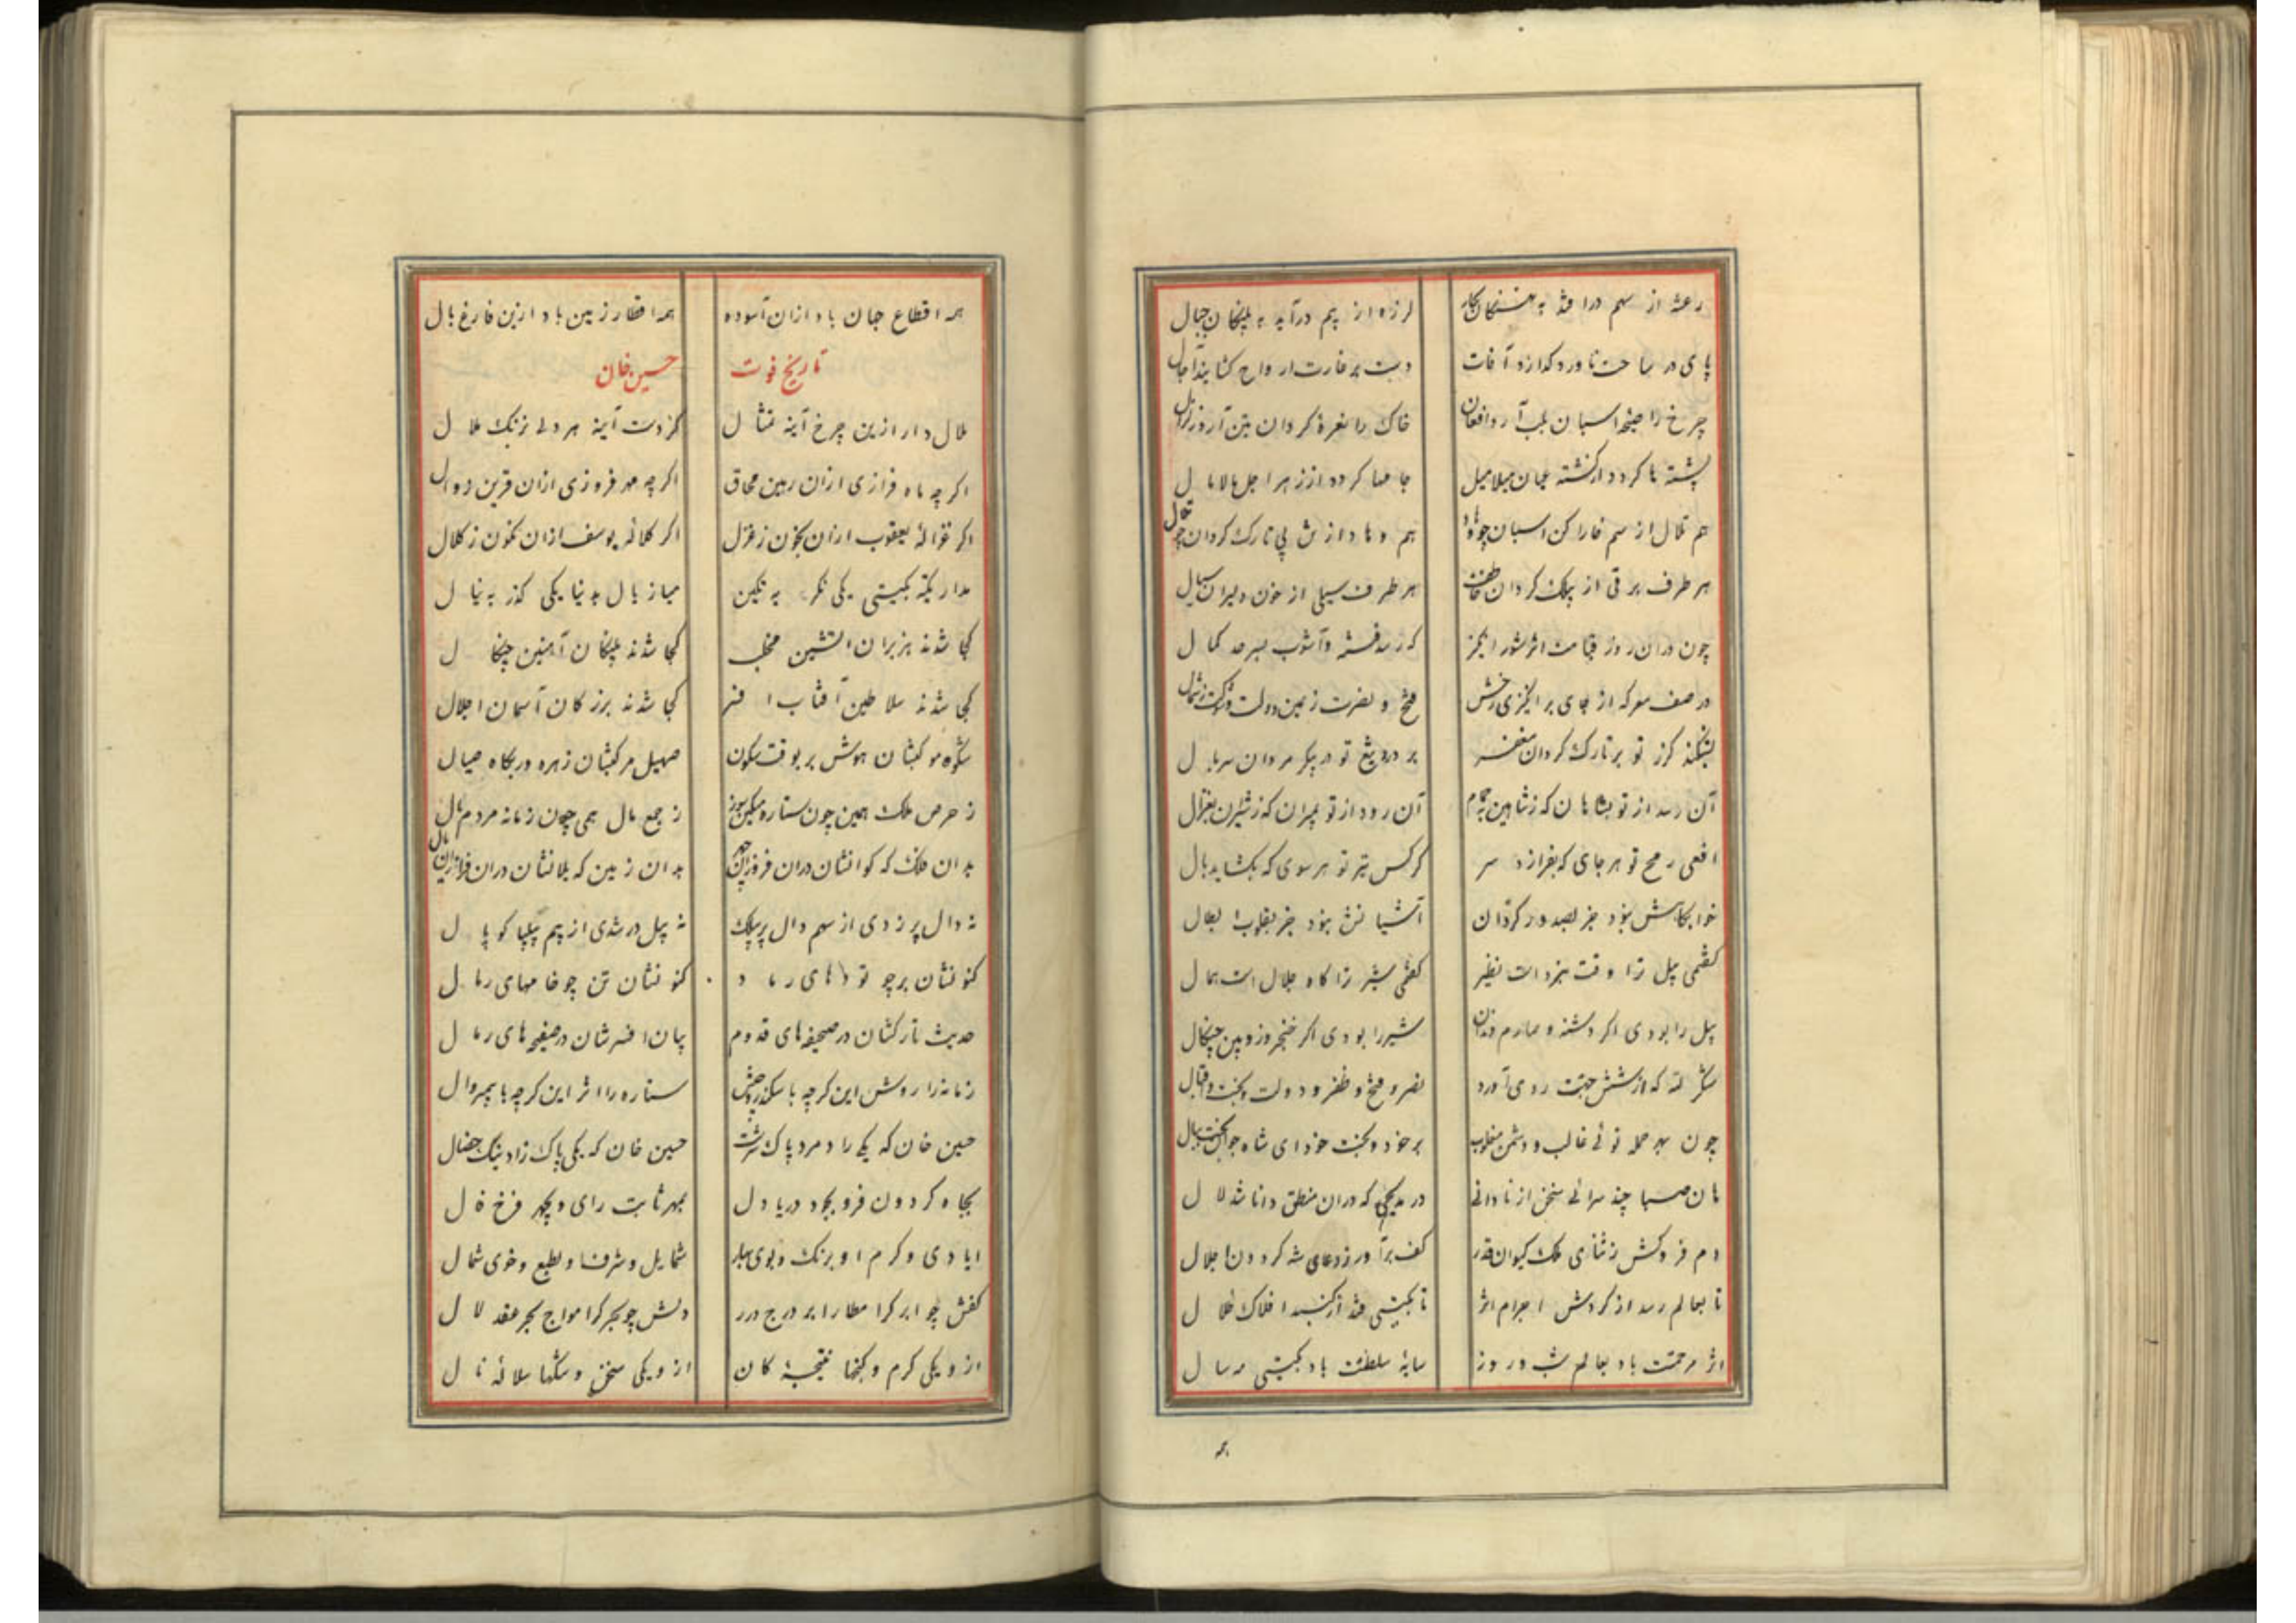 رعشه از سهم درافتد به نهنگان بحار لرزه از بیم درآید به پلنگان جبال
پای در ساحت ناورد گذارد آفات دست بر غارت ارواح گشایند آجال
چرخ را صیحه اسبان بلب آرد افغان خاک را نعره گردان بتن آرد زلزال
پشته ها گردد از کشته جهان میلامیل جامها کرده از زهر اجل مالامال
هم قلال از سم خارا کن اسبان چو وهاد هم وهاد از تن بی تارک گردان چو قلال
هر طرف برقی از بیلک گردان خاطف هر طرف سیلی از خون دلیران سیال
چون دران روز قیامت اثر شور انگیز که رسد فتنه و آشوب بسرحد کمال
در صف معرکه از جای برانگیزی رخش فتح و نصرت ز یمین دولت و شوکت ز شمال
بشکند گرز تو بر تارک گردان مغفر بر درد تیغ تو در پیکر مردان سربال
آن رسد از تو بشاهان که ز شاهین بحمام آن رود از تو بمیران که ز شیران بغزال
افعی رمح تو هر جای که بفرازد سر کرکس تیر تو هر سوی که بگشاید بال
خوابگاهش نبود جز بصدور گردان آشیانش نبود جز بقلوب ابطال
گفتمی پیل ترا وقت نبرد است نظیر گفتمی شیر ترا گاه جلال است همال
پیل را بودی اگر دشنه و صارم دندان شیر را بودی اگر خنجر و زوبین چنگال
شکر لله که از شش جهت روی آورد نصر و فتح و ظفر و دولت و بخت و اقبال
چون بهر حمله توئی غالب و دشمن مغلوب بر خود و بخت خود ای شاه جوانبخت ببال
هان صبا چند سرائی سخن از نادانی در مدیحی که دران منطق دانا شد لال
دم فروکش ز ثنای ملک کیوان قدر کف برآور ز دعای شه گردون اجلال
تا بعالم رسد از گردش اجرام اثر تا بگیتی فتد از گنبد افلاک ظلال
اثر مرحمتت باد بعالم شب و روز سایه سلطنتت باد بگیتی مه و سال
همه
همه اقطاع جهان باد ازان آسوده همه اقطار زمین باد ازین فارغ بال
تاریخ فوت حسین خان
ملال دار ازین چرخ آینه تمثال کزوست آینه هر دلی بزنگ ملال
اگر چه ماه فرازی ازان رهین محاق اگر چه مهر فروزی ازان قرین زوال
مدار تکیه بگیتی یکی نگر به تگین مناز بال بدنیا یکی گذر به نیال
کجا شدند هزبران آتشین مخلب کجا شدند پلنگان آهنین چنگال
کجا شدند سلاطین آفتاب افسر کجا شدند بزرگان آسمان اجلال
شکوه موکبشان هوش بر بوقت سکون صهیل مرکبشان زهره در بگاه صیال
نه دال پر زدی از سهم دال پر بیلک نه پیل در شدی از بیم پیلپا کوپال
کنونشان بر چو تودهای رماد کنونشان تن چو خامهای رمال
حدیث تارکشان در صحیفه های قدوم بیان افسرشان در صفیحه های رمال
زمانه را روش این گر چه با سکندر و جم ستاره را اثر این گر چه با
حسین خان که یکی راد مرد پاک سرشت حسین خان که یکی پاک زاد نیک خصال
بجاه گردون فر و بجود دریا دل بمهر ثابت رای و بچهر فرخ فال
ایادی و کرم او برنگ و بوی بهار شمایل و شرف او بطبع و خوی شمال
کفش چو ابر گر امطار ابر درج درر دلش چو بحر گر امواج بحر عقد لال
ازو یکی کرم و گنجها نتیجه کان ازو یکی سخن و